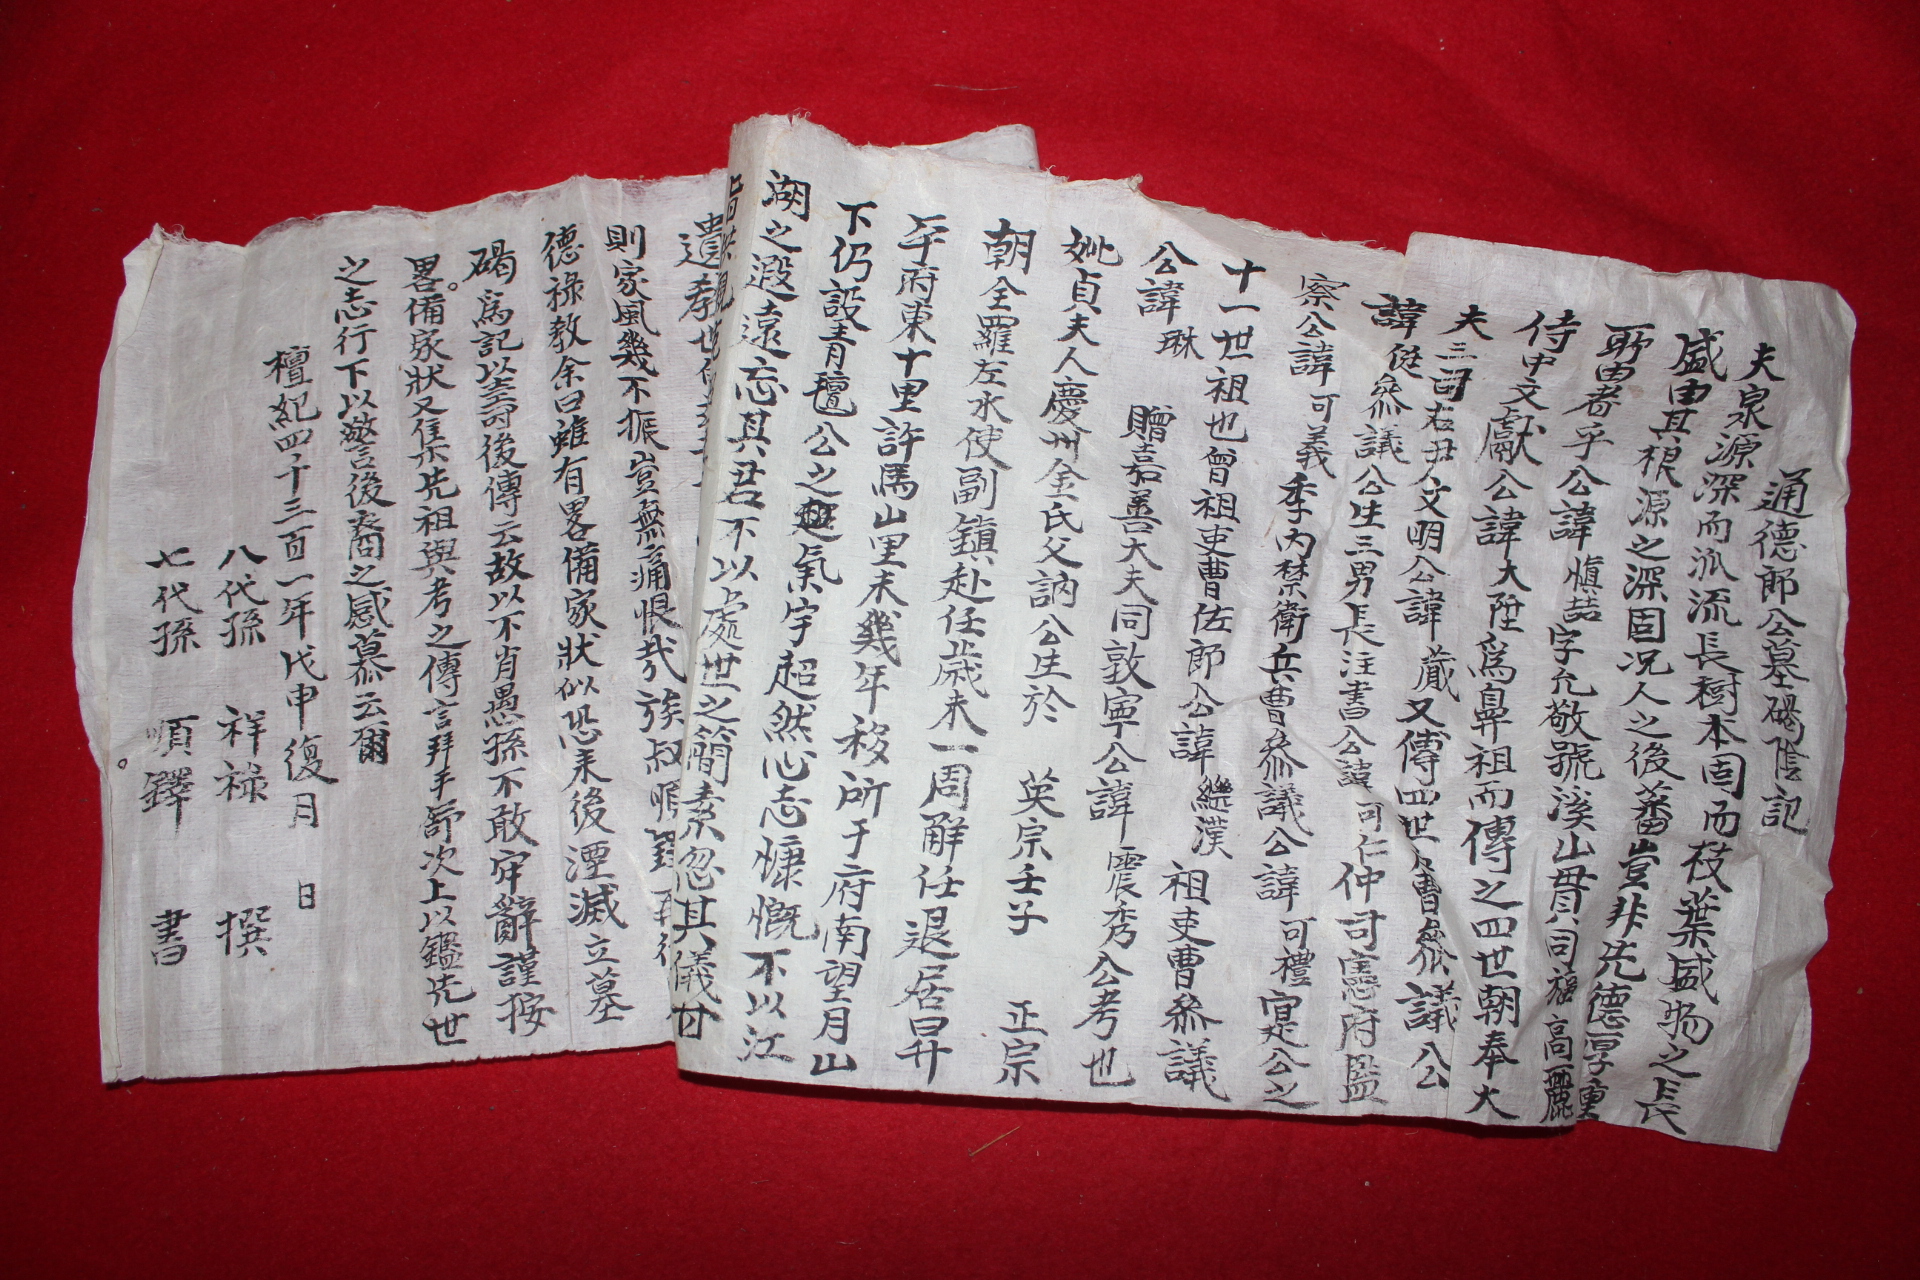 通德郎公墓碣陰記
夫泉源深而派流長樹本固而枝葉盛物之長
盛由其根源之深固况人之後蕃豈非先德厚重
所由者乎公諱愼喆字允敬號溪山貫同福高麗
侍中文獻公諱大陞爲鼻祖而傳之四世朝奉大
夫三司右尹文明公諱蕆又傳四世吏曹叅議公
諱侹叅議公生三男長注書公諱可仁仲司憲府監
察公諱可義季内禁衛兵曹叅議公諱可禮寔公之
十一世祖也曾祖吏曹佐郎公諱繼漢祖吏曹叅議
公諱琳贈嘉善大夫同敦寧公諱震秀公考也
妣貞夫人慶州金氏父訥公生於英宗壬子正宗
朝全羅左水使副鎮赴任歲未一周解任退居曰升
平府東十里許馬山里未幾年移所于府南望月山
下仍設青氊公之氣宇超然心志慷慨不以江
湖之遐遠忘其君不以處世之簡素忽其儀甘
遺孝世
則家風幾不振豈無痛恨哉族叔順
德祿教余曰雖有畧備家狀似恐未後湮滅立墓
碣爲記以壽後傳云故以不肖愚孫不敢牢辭謹按
畧備家狀又隹示先祖與考之傳言拜手舒次上以鑑先世
之志行下以警言後裔之感慕云爾
檀紀四千三百一年戊申復月 日
八代孫 祥祿 撰
七代孫 順鐸 書